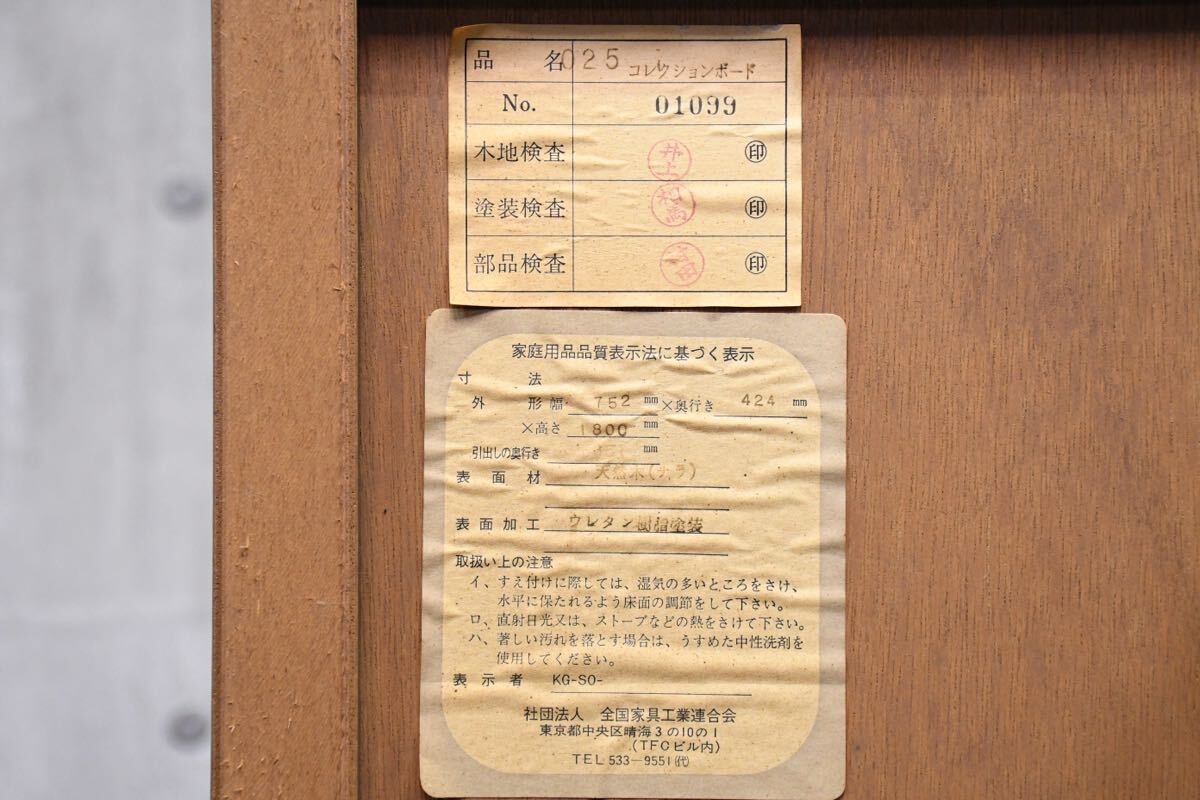 品名 025 コレクションボード
No. 01099
木地検査 井上 ㊞
塗装検査 ㊞
部品検査 ㊞
家庭用品品質表示法に基づく表示
寸法
外形幅 752 mm ×奥行き 424 mm
×高さ 1800 mm
引出しの奥行き mm
表面材 天然木(ナラ)
表面加工 ウレタン樹脂塗装
取扱い上の注意
イ、すえ付けに際しては、湿気の多いところをさけ、
水平に保たれるよう床面の調節をして下さい。
ロ、直射日光又は、ストーブなどの熱をさけて下さい。
ハ、著しい汚れを落とす場合は、うすめた中性洗剤を
使用してください。
表示者 KG-SO-
社団法人 全国家具工業連合会
東京都中央区晴海3の10の1
(TFCビル内)
TEL 533-9551㈹